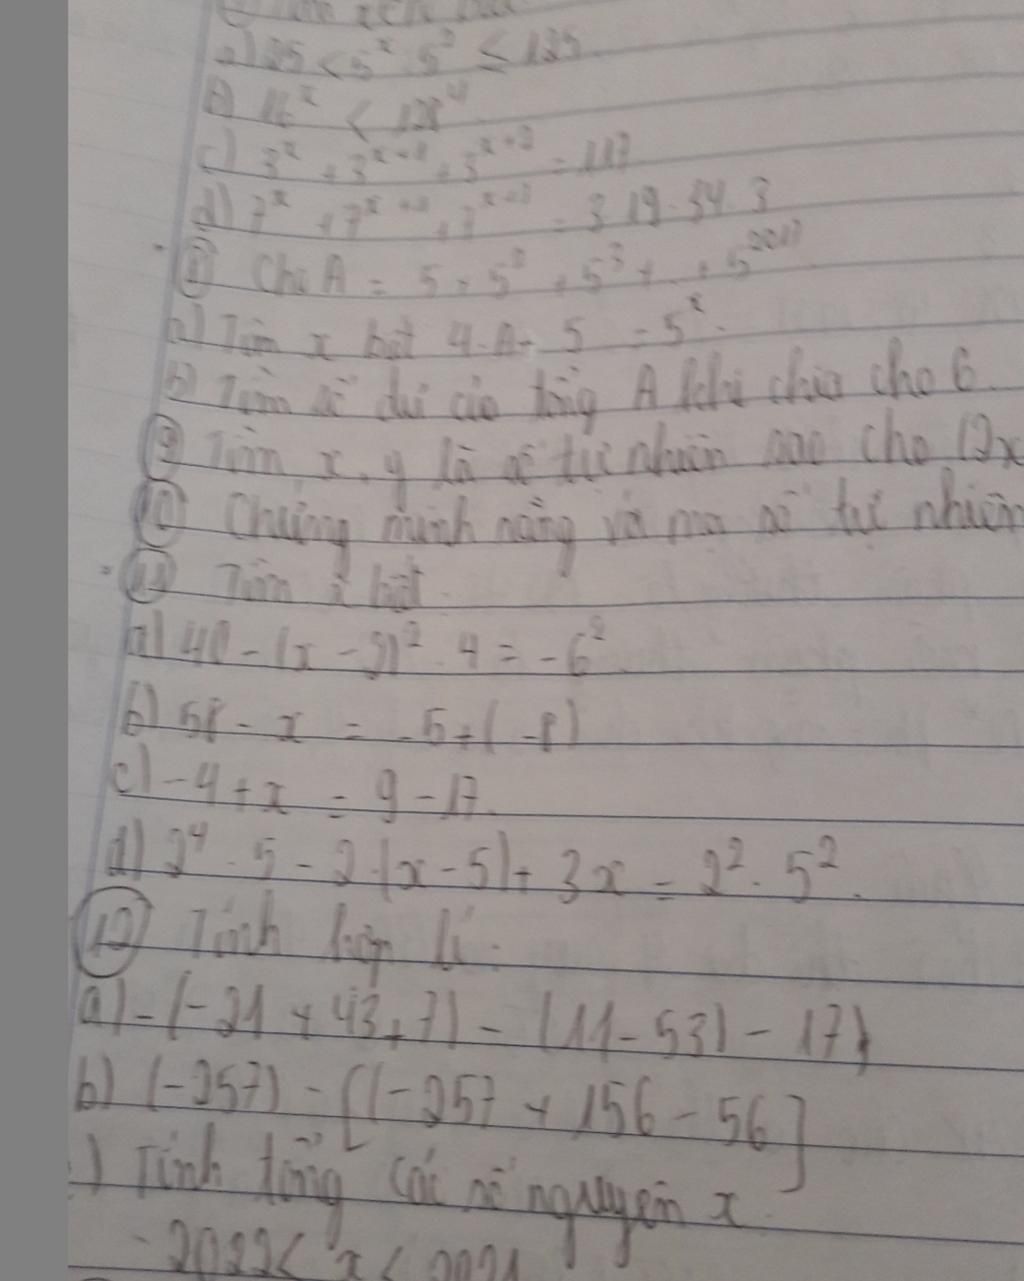 a) 25 < 5^x . 5^2 ≤ 125
b) 16^x < 128^4
c) 3^x + 3^{x+1} + 3^{x+2} = 117
d) 7^x + 7^{x+2} + 7^{x+3} = 3.19.
⑧ Cho A = 5 + 5^2 + 5^3 + + 5^{2017}
a) Tìm x biết 4.A + 5 = 5^x.
b) Tìm số dư của tổng A khi chia cho 6.
⑨ Tìm x, y là số tự nhiên sao cho (2x
⑩ Chứng minh rằng với mọi số tự nhiên
Tìm x biết
a) 40 - (x - 2)^2 . 4 = -6^2
b) 58 - x = -5 + (-8)
c) -4 + x = 9 - 17.
d) 2^4 . 5 - 2.(x - 5) + 3x = 2^2 . 5^2.
⑫ Tính hợp lí:
a) -(-21 + 43 + 7) - (11 - 53) - 17)
b) (-257) - [(-257 + 156 - 56]
) Tính tổng các số nguyên x.
-2022 < x < 2021